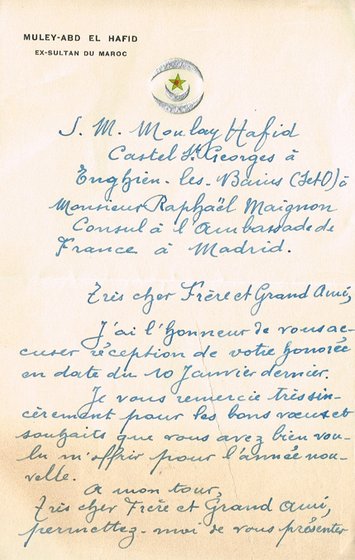 MULEY-ABD EL HAFID
EX-SULTAN DU MAROC
S. M. Moulay Hafid
Castel St Georges à
Enghien-les-Bains (S et O) à
Monsieur Raphaël Maignon
Consul à l'Ambassade de
France à Madrid.
Très cher Frère et Grand Ami,
J'ai l'honneur de vous ac-
cuser réception de votre honorée
en date du 10 Janvier dernier.
Je vous remercie très sin-
cèrement pour les bons voeux et
souhaits que vous avez bien vou-
lu m'offrir pour l'année nou-
velle.
A mon tour,
Très cher Frère et Grand Ami,
permettez-moi de vous présenter